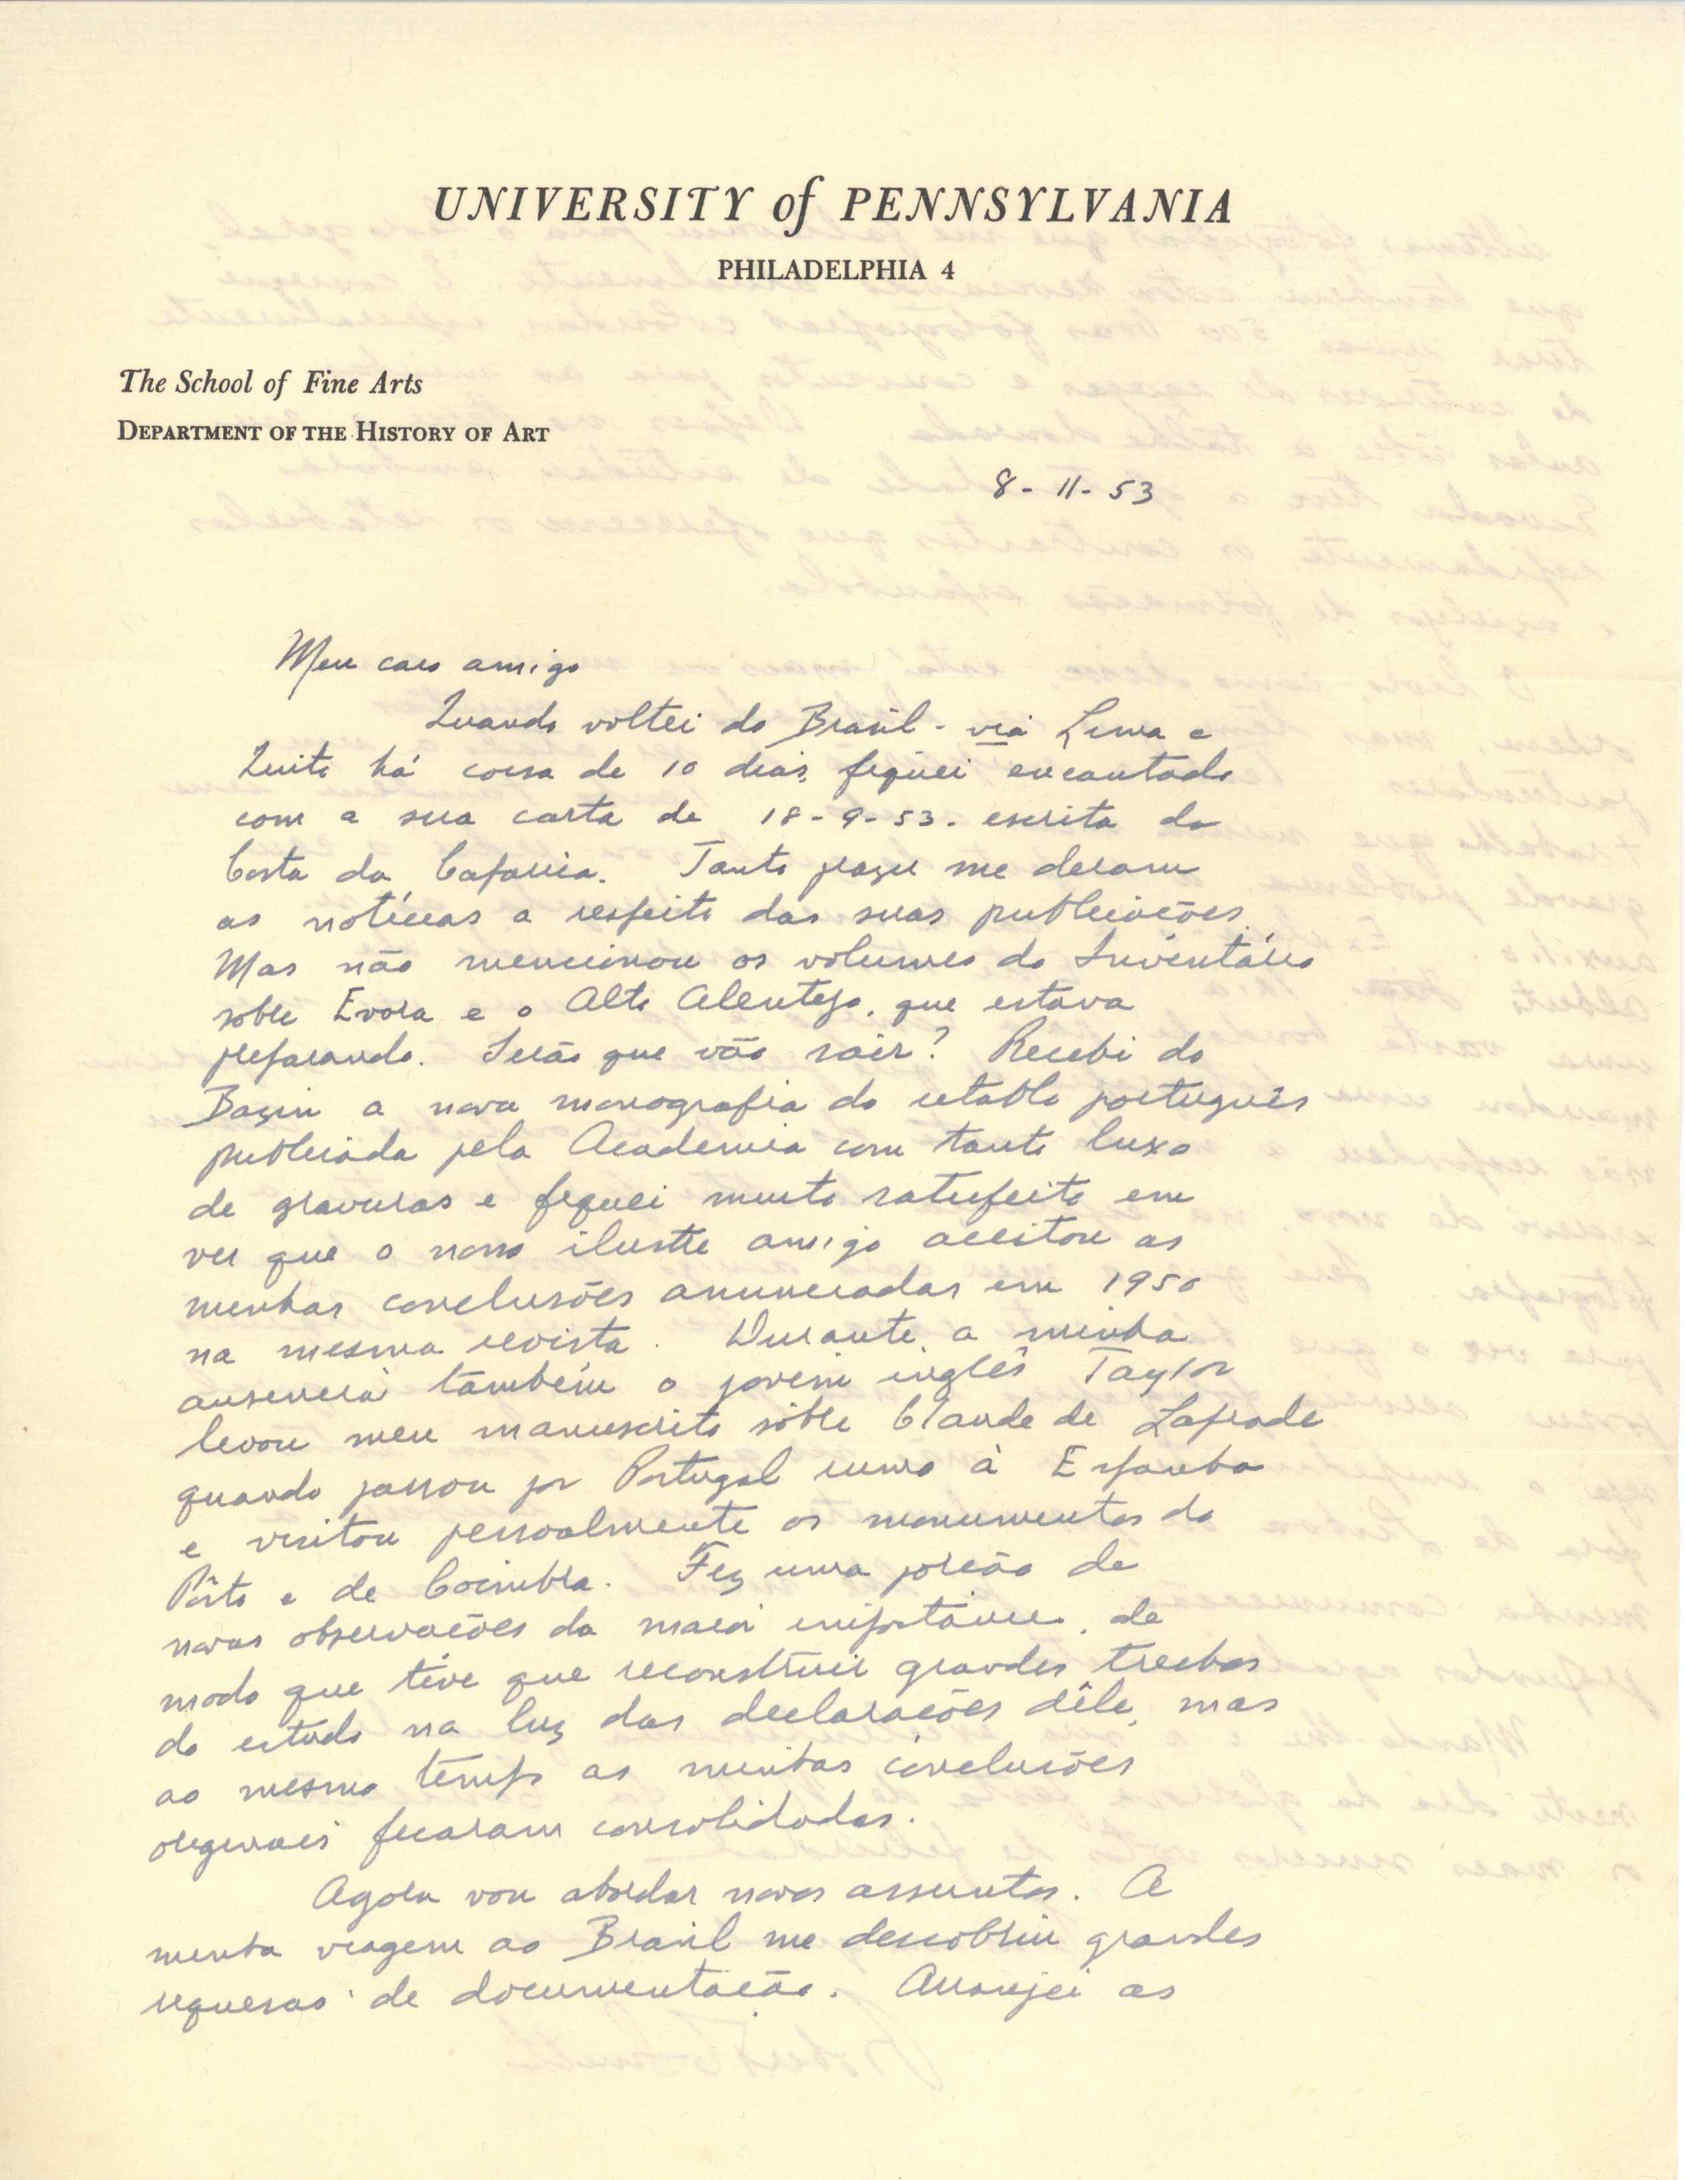 UNIVERSITY of PENNSYLVANIA
PHILADELPHIA 4
The School of Fine Arts
DEPARTMENT OF THE HISTORY OF ART
8-11-53
Meu caro amigo
Quando voltei do Brasil - via Lima e
Quito há coisa de 10 dias, fiquei encantado
com a sua carta de 18-9-53. escrita da
Costa da Caparica. Tanto prazer me deram
as notícias a respeito das suas publicações.
Mas não mencionou os volumes do Inventário
sobre Evora e o Alto Alentejo, que estava
preparando. Serão que vão sair? Recebi do
Bazin a nova monografia do retablo português
publicada pela Academia com tanto luxo
de gravuras e fiquei muito satisfeito em
ver que o nosso ilustre amigo aceitou as
minhas conclusões anunciadas em 1950
na mesma revista. Durante a minha
ausencia também o jovem inglês Taylor
levou meu manuscrito sôbre Claude de Laprade
quando passou por Portugal rumo à Espanha
e visitou pessoalmente os monumentos do
Pôrto e de Coimbra. Fez uma porção de
novas observações da maior importância, de
modo que tive que reconstruir grandes trechos
do estudo na luz das declarações dêle, mas
ao mesmo tempo as minhas conclusões
originais ficaram consolidadas.
Agora vou abordar novos assuntos. A
minha viagem ao Brasil me descobriu grandes
riquesas de documentação. Arranjei as